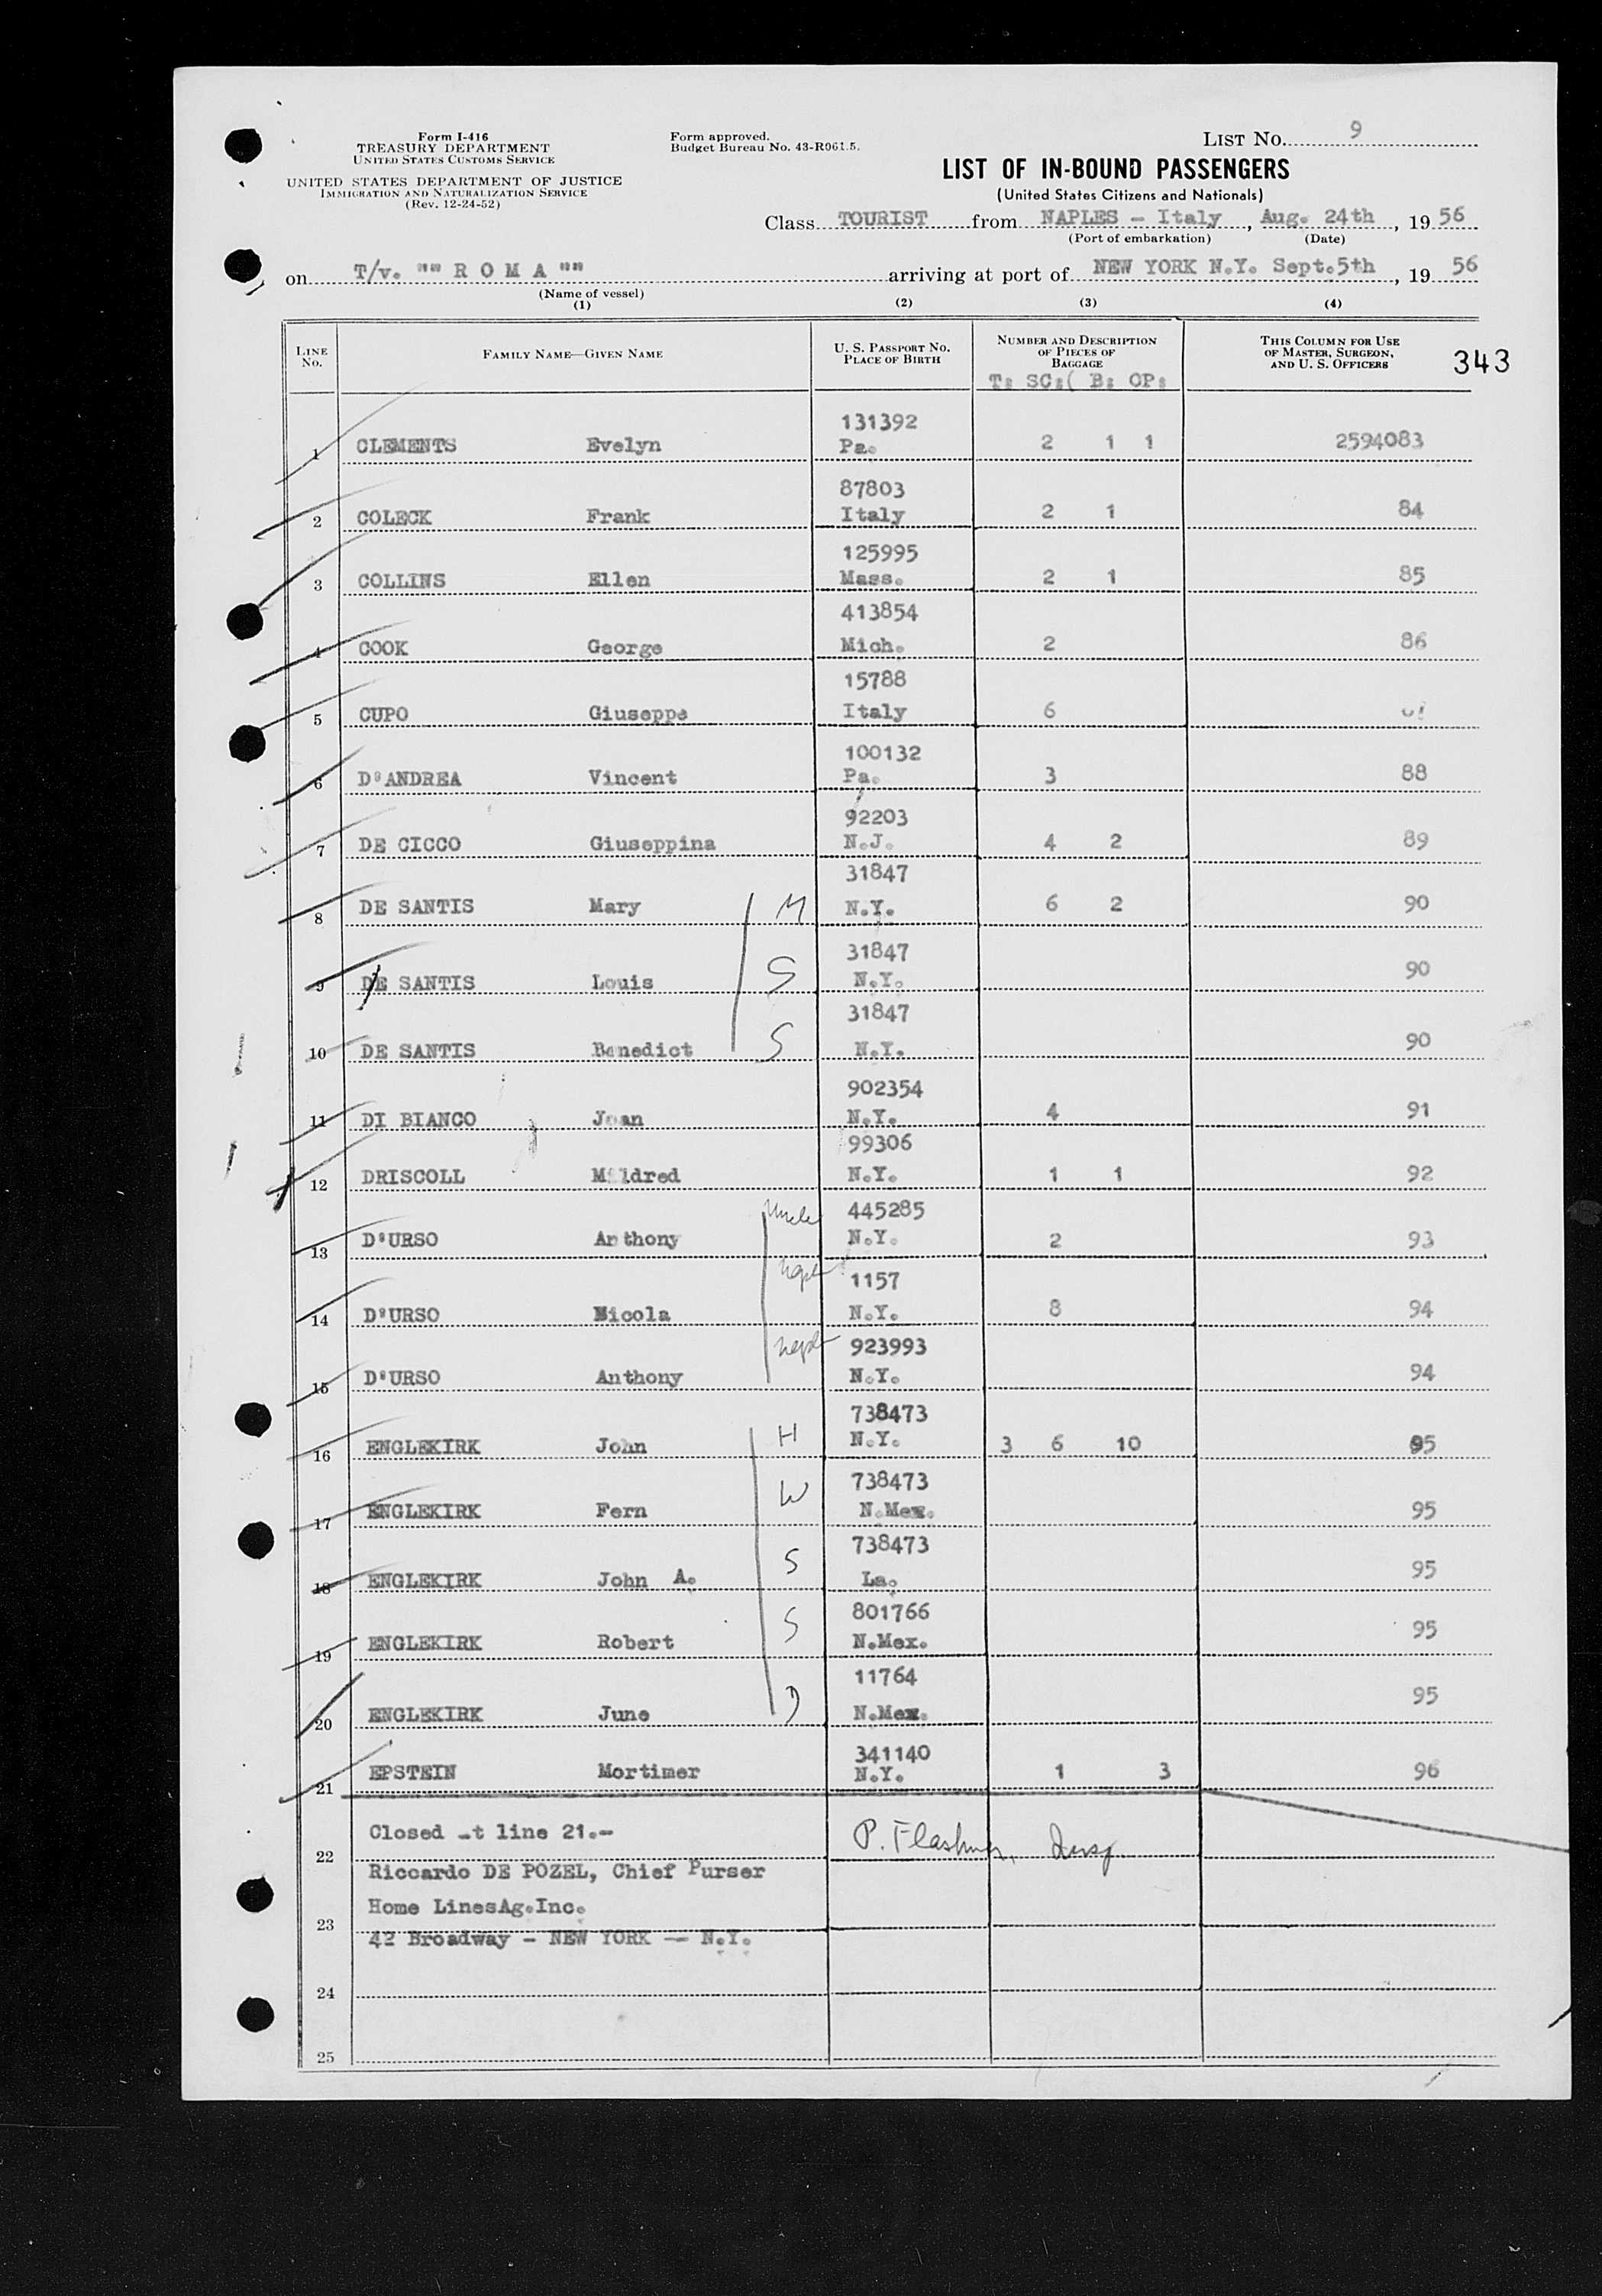 Form I-416
TREASURY DEPARTMENT
UNITED STATES CUSTOMS SERVICE
UNITED STATES DEPARTMENT OF JUSTICE
IMMIGRATION AND NATURALIZATION SERVICE
(Rev. 12-24-52)
Form approved.
Budget Bureau No. 43-R061.5.
LIST NO. 9
LIST OF IN-BOUND PASSENGERS
(United States Citizens and Nationals)
Class TOURIST from NAPLES - Italy, Aug. 24th, 19 56
(Port of embarkation) (Date)
on T/v. "" R O M A "" arriving at port of NEW YORK N.Y. Sept.5th, 19 56
(Name of vessel)
(1) (2) (3) (4)
LINE NO. FAMILY NAME—GIVEN NAME U. S. PASSPORT NO. PLACE OF BIRTH NUMBER AND DESCRIPTION OF PIECES OF BAGGAGE THIS COLUMN FOR USE OF MASTER, SURGEON, AND U. S. OFFICERS 343
T: SC:( B: OP:
131392
1 CLEMENTS Evelyn Pa. 2 1 1 2594083
87803
2 COLECK Frank Italy 2 1 84
125995
3 COLLINS Ellen Mass. 2 1 85
413854
4 COOK George Mich. 2 86
15788
5 CUPO Giuseppe Italy 6
100132
6 D'ANDREA Vincent Pa. 3 88
92203
7 DE CICCO Giuseppina N.J. 4 2 89
31847
8 DE SANTIS Mary M N.Y. 6 2 90
31847
9 DE SANTIS Louis S N.Y. 90
31847
10 DE SANTIS Benedict S N.Y. 90
902354
11 DI BIANCO Joan N.Y. 4 91
99306
12 DRISCOLL Mildred N.Y. 1 1 92
Uncle 445285
13 D'URSO Anthony N.Y. 2 93
neph 1157
14 D'URSO Nicola N.Y. 8 94
neph 923993
15 D'URSO Anthony N.Y. 94
738473
16 ENGLEKIRK John H N.Y. 3 6 10 95
738473
17 ENGLEKIRK Fern W N.Mex. 95
738473
18 ENGLEKIRK John A. S La. 95
801766
19 ENGLEKIRK Robert S N.Mex. 95
11764
20 ENGLEKIRK June D N.Mex. 95
341140
21 EPSTEIN Mortimer N.Y. 1 3 96
Closed at line 21.- P. Insp.
22
Riccardo DE POZEL, Chief Purser
Home LinesAg.Inc.
23
42 Broadway - NEW YORK -- N.Y.
24
25